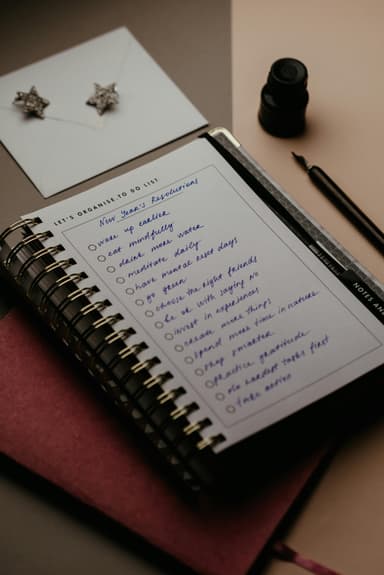 LET'S ORGANISE TO DO LIST
New Year's Resolutions
wake up earlier
eat mindfully
drink more water
meditate daily
have mental reset days
go green
choose the right friends
be ok with saying no
invest in experiences
create more things
spend more time in nature
shop smarter
practice gratitude
do hardest tasks first
take action
NOTES AN